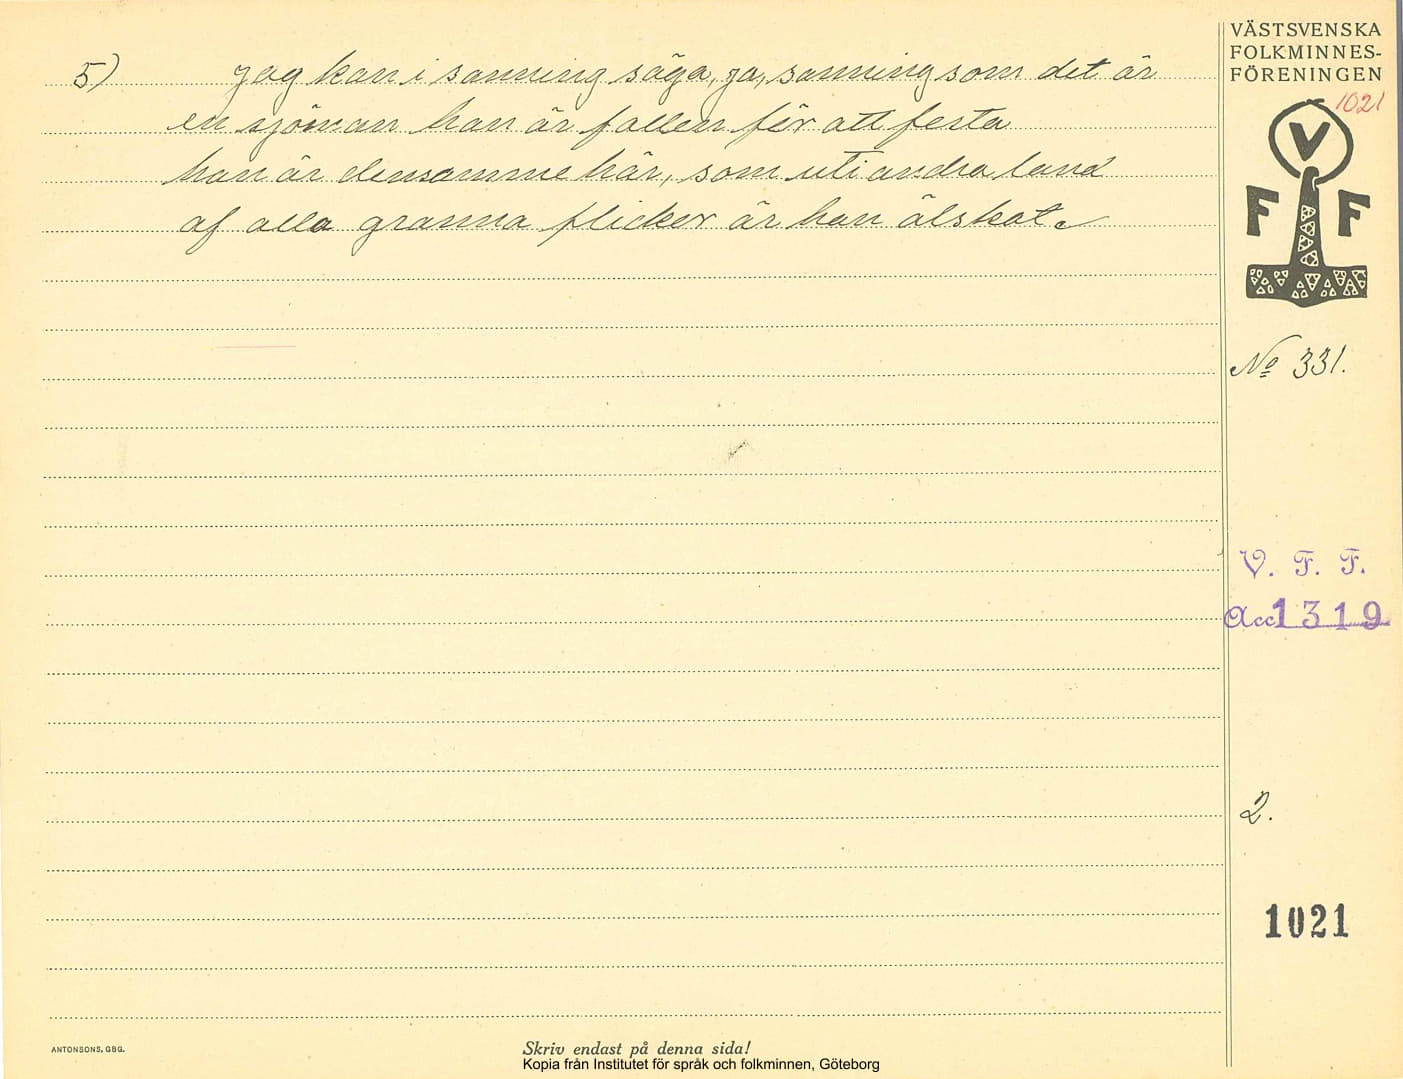 5) Jag kan i sanning säga, ja, sanning som det är
en sjöman han är fallen för att festa
han är densamme här, som uti andra land
af alla granna flicker är han älskat.
VÄSTSVENSKA
FOLKMINNES-
FÖRENINGEN
1021
V
F F
No 331.
V. F. F.
Acc 1319
2.
1021
ANTONSONS, GBG.
Skriv endast på denna sida!
Kopia från Institutet för språk och folkminnen, Göteborg